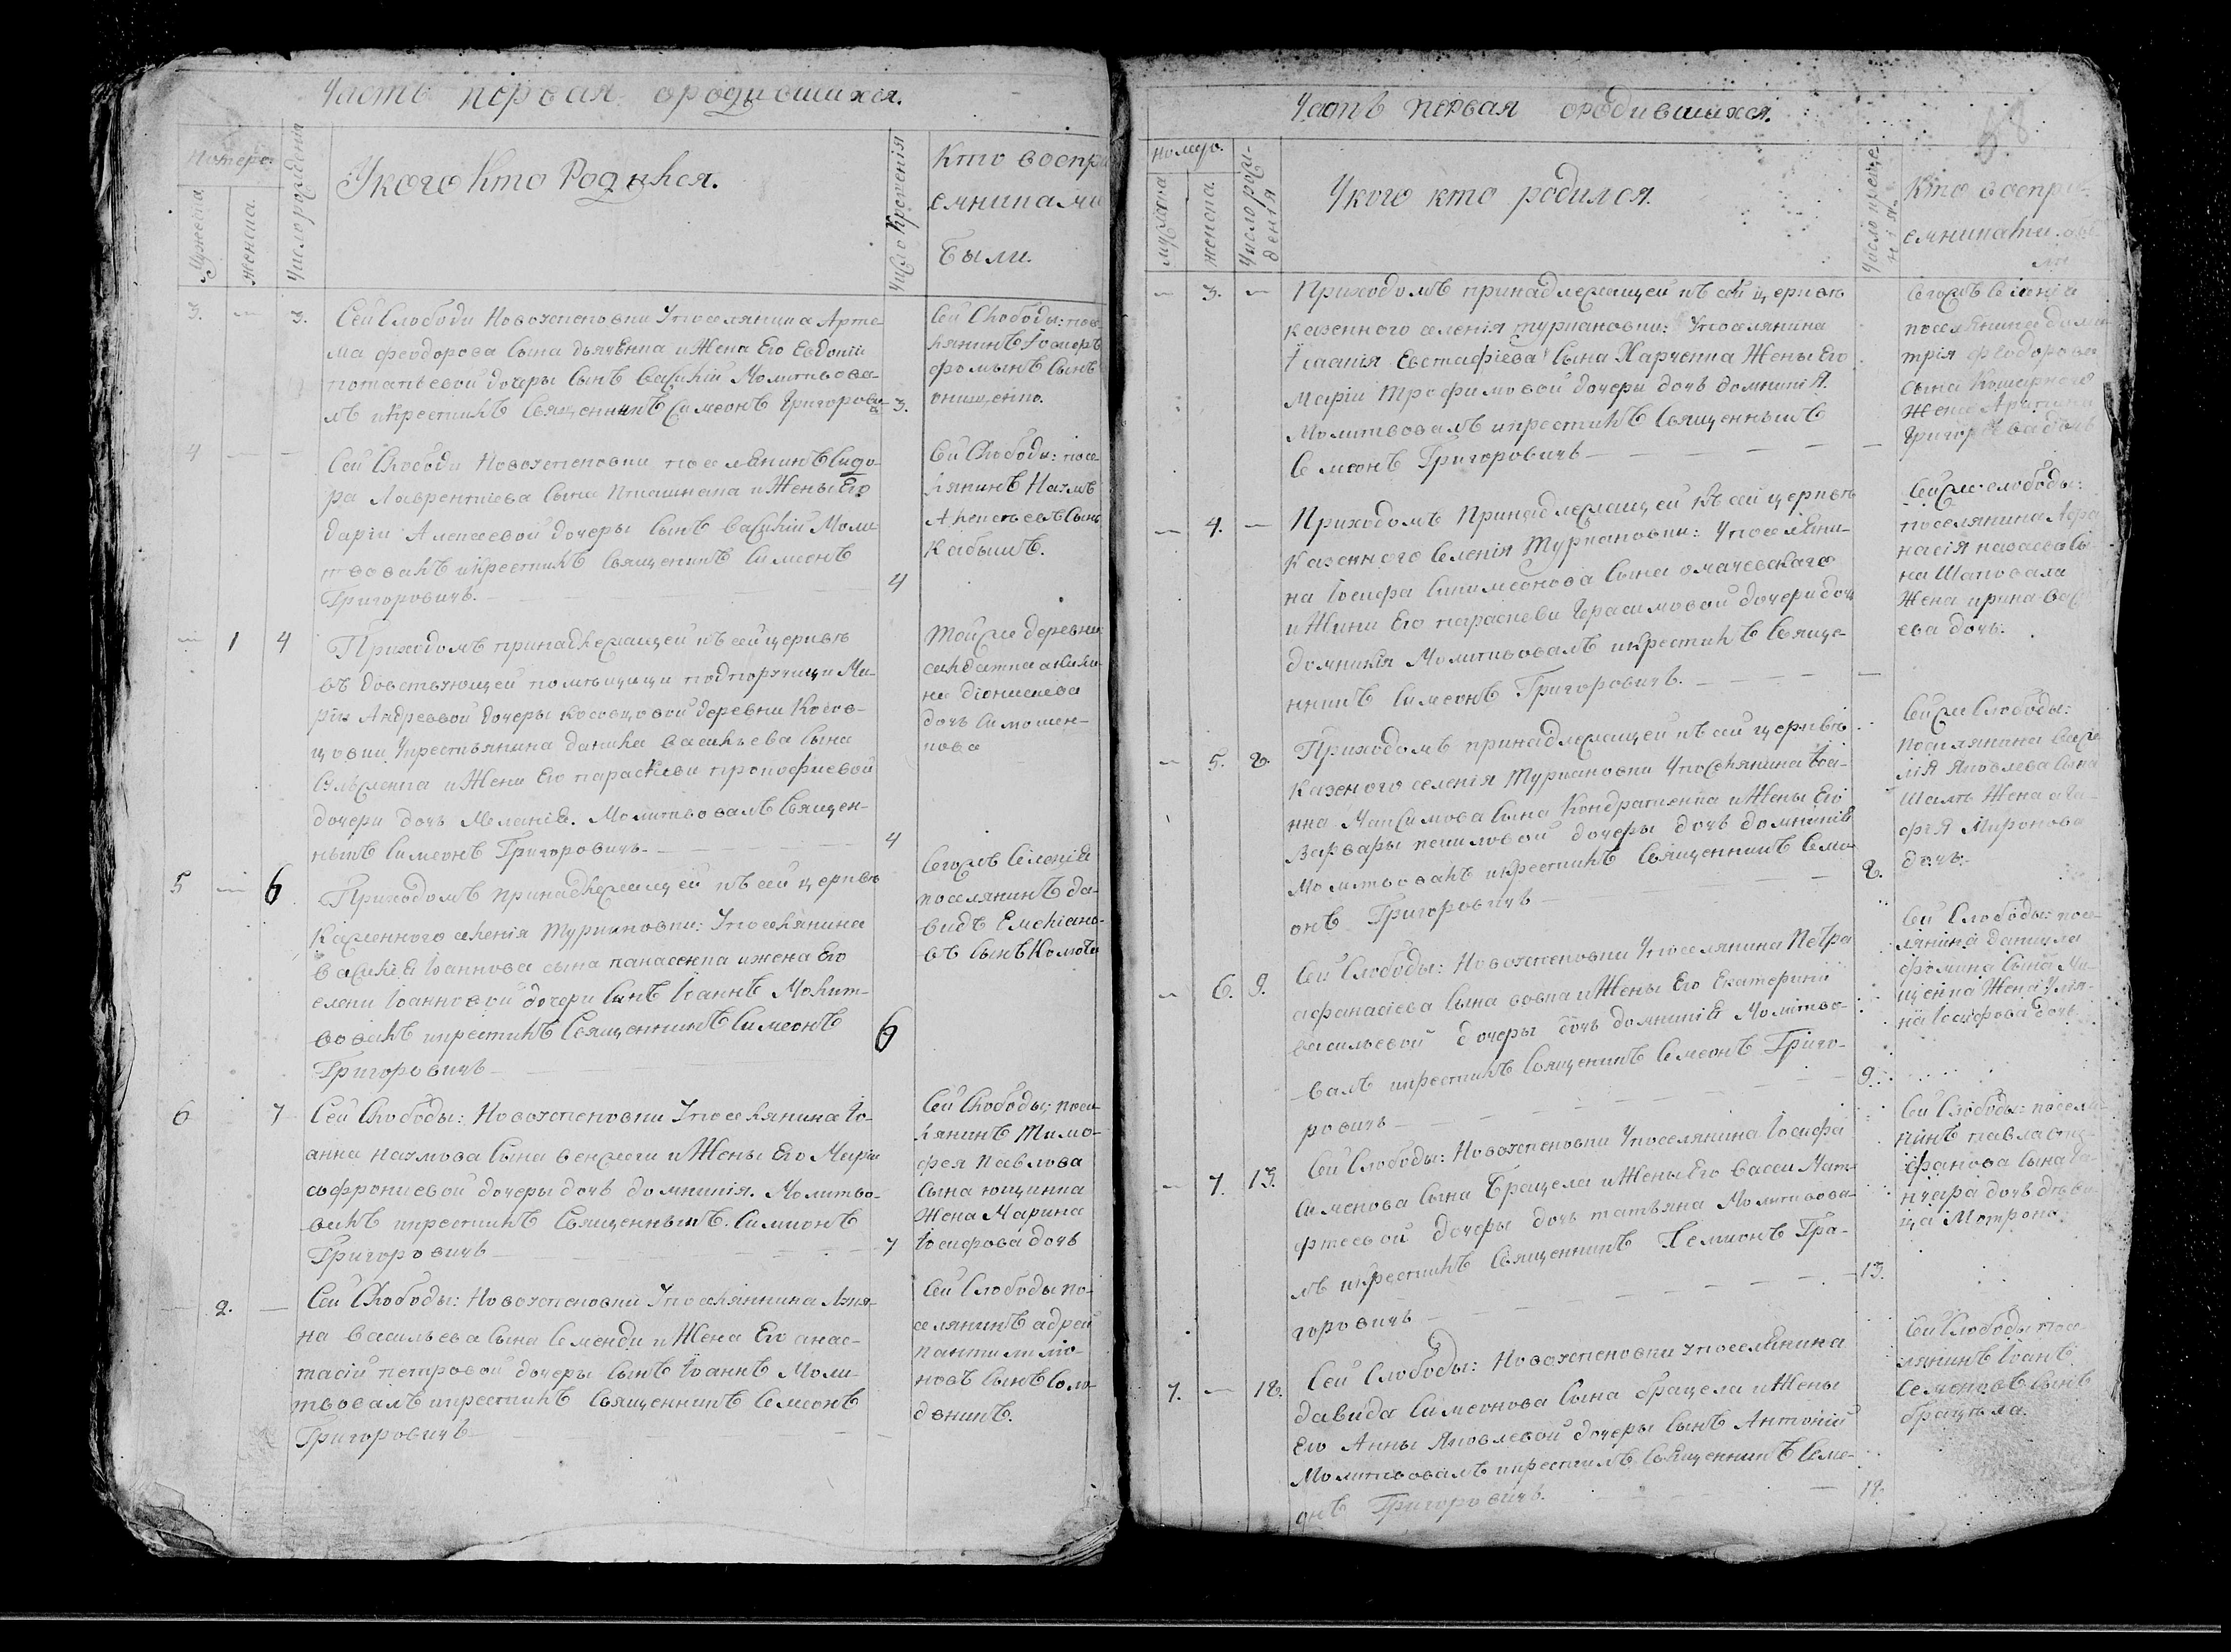 Часть первая ородившихся.
Номеръ.
Мужеска
женска.
Число рождения
У кого Кто Родился.
Число Крещенія
Кто воспри
емниками
Были.
3. — 3.
Сей Слободи Новоуспеновки Упоселянина Арте-
ма феодорова Сына дьяченка и Жена Его Евдокіи
потапьевой дочеры Сынъ василій Молитвова-
лъ икрестилъ Священникъ Симеонъ Григорович
3.
Сей Слободы: посе-
лянинъ Іосифъ
фоминъ Сынъ
онищенко.
4 — —
Сей Слободи Новоуспеновки поселянинъ Сидо-
ра Лаврентиева Сына Пташника и Жены Его
даріи Алексеевой дочеры Сынъ василій Моли-
твовалъ икрестилъ Священикъ Симеонъ
Григоровичъ.
4
Сей Слободи: посе-
лянинъ Наумъ
Алексеевъ Сынъ
Кабышъ.
— 1 4
Приходомъ принадлежащей къ сей церквѣ
въ довствующей помѣщици подпоручици Ма-
ріи Андреевой дочеры косовцовой деревни Косов-
цовки Укрестьянина данила васильева Сына
и Жени Его параскеви прокофиевой
дочери дочь Меланія. Молитвовалъ Священ-
никъ Симеонъ Григоровичь.
4
Тойже деревни
салдатка акили-
на дионисиева
дочь Симонен-
кова
5 — 6
Приходомъ принадлежащей къ сей церквѣ
Казенного селенія Туркановки: Упоселянина
василія Іоаннова сына панасенка ижена Его
елени Іоанновой дочери Сынъ Іоаннъ Молит-
вовалъ икрестилъ Священникъ Симеонъ
Григоровичъ
6
Согожъ Селенія
поселянинъ да-
видъ Емеліано-
въ Сынъ
6 7
Сей Слободы: Новоуспеновки Упоселянина Іо-
анна наумова Сына и Жены Его Маріи
софрониевой дочеры дочь домникія. Молитво-
валъ икрестилъ Священникъ. Симионъ
Григоровичъ
7
Сей Слободы: посе-
лянинъ Тимо-
фея Павлова
Сына ющинка
Жена Марина
Іосифова дочь
— 2. —
Сей Слободы: Новоуспеновки Упоселяннина Лукя-
на Васильева Сына Семенди и Жена Его анас-
тасіи петровой дочеры Сынъ Іоаннъ Моли-
твовалъ икрестилъ Священникъ Семеонъ
Григоровичъ
Сей Слободы по-
селянинъ адрей
пантилимо-
новъ Сынъ Соло-
доникъ.
Часть первая ородившихся.
68
номеръ.
мужеска
женска.
Число рож-
денія
У кого кто родился.
Кто воспри-
емниками бы-
ли
— 3. —
Приходомъ принадлежащей къ сей церквѣ
казенного селенія туркановки: Упоселянина
Евстафіева Сына Харченка Жены Его
Маріи Трофимовой дочери дочь домникія.
Молитвовалъ икрестилъ Священникъ
Семеонъ Григоровичъ
Согожъ Селенія
поселянина дими-
трія феодорова
сына
Жена
Григорева дочь
— 4. —
Приходомъ Принадлежащей къ сей церквѣ
казенного Селенія Туркановки: Упоселяни-
на Іосифа Симеонова Сына омачевского
и Жини Его параскеви Герасимовой дочери дочь
домникія Молитвовалъ икрестилъ Священ-
никъ Симеонъ Григоровичъ.
Сейже слободы:
поселянина Афа-
насія Сы-
на Шаповала
Жена ирина васи-
ева дочь.
— 5. 8.
Приходомъ принадлежащей къ сей церквѣ
казеного селенія Туркановки Упоселянина Іоа-
нна Максимова Сына Кондратенка и Жены Его
варвары дочеры дочь домникія
Молитвовалъ икрестилъ Священникъ Семи-
онъ Григоровичъ
8.
Сейже Слободы:
поселянина васи-
лія Яковлева Сына
Жена ага-
фія Миронова
дочь.
— 6. 9.
Сей Слободы: Новоуспеновки Упоселянина Петра
афанасіева Сына вовка и Жены Его Екатерини
васильевой дочеры дочь домникія Молитво-
валъ икрестилъ Священикъ Семеонъ Григо-
ровичъ
9.
Сей Слободы: посе-
лянина данила
фомина Сына
Жена Улія-
на Іосифова дочь
— 7. 13.
Сей Слободы: Новоуспеновки Упоселянина Іосифа
Сименова Сына Брацела и Жены Его васси Мат-
фтеевой дочеры дочь татьяна Молитвова-
лъ икрестилъ Священникъ Семионъ Гри-
горовичъ
13.
Сей Слободы: поселя-
нинъ павла
Сына
дочь дѣви-
ца Мотрона.
7. — 18.
Сей Слободы: Новоуспеновки упоселянина
давида Симеонова Сына брацела и Жены
Его Анны Яковлевой дочеры Сынъ Антоній
Молитвовалъ икрестилъ Священникъ Семе-
онъ Григоровичъ.
18.
Сей Слободы посе-
лянинъ Іоанъ
Семеновъ Сынъ
брацила.